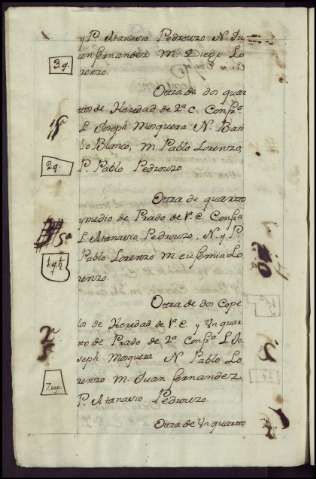 y P. Atanasio Pedrouzo, N. Ju
an Fernandez M. Diego Lo
3q.
renzo.
Otra de dos quar
tos de Heredad de 2ª C. Confª
L. Joseph Mosquera N. Bar
Blanco, M. Pablo Lorenzo,
2q.
P. Pablo Pedrouzo
Otra de quarto
y medio de Prado de P. C. Confª
L. Atanasio Pedrouzo, N. y P.
Pablo Lorenzo M. eufemia Lo
renzo.
Otra de dos Cope
los de Heredad de P. C. y Un quar
to de Prado de 2ª Confª L. Jo
seph Mosquera N. Pablo Lo
renzo M. Juan Fernandez
P. Atanasio Pedrouzo
Otra de Un quarto